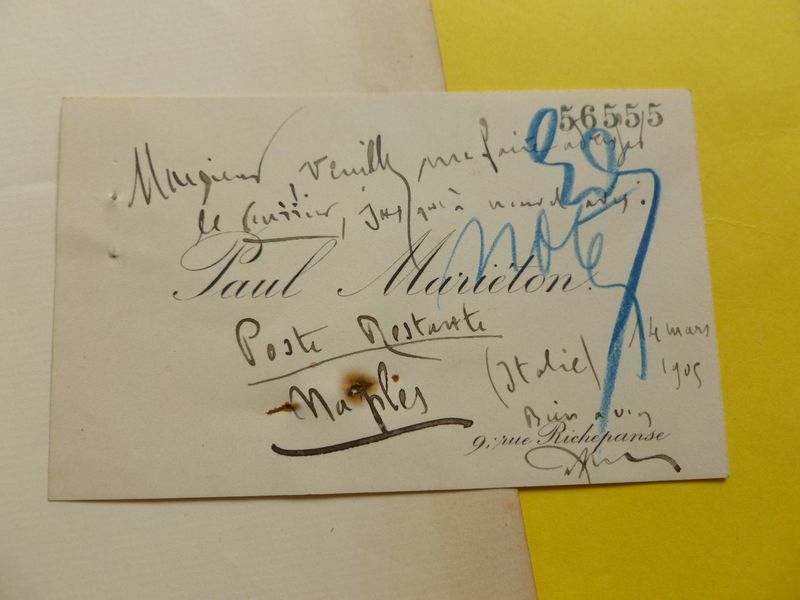 56555
Monsieur, veuillez me faire adresser
le Courrier, jusqu'à nouvel avis.
Paul Mariéton.
note
Poste Restante
Naples
(Italie)
14 mars
1905
Bien à vous
9, rue Richepanse